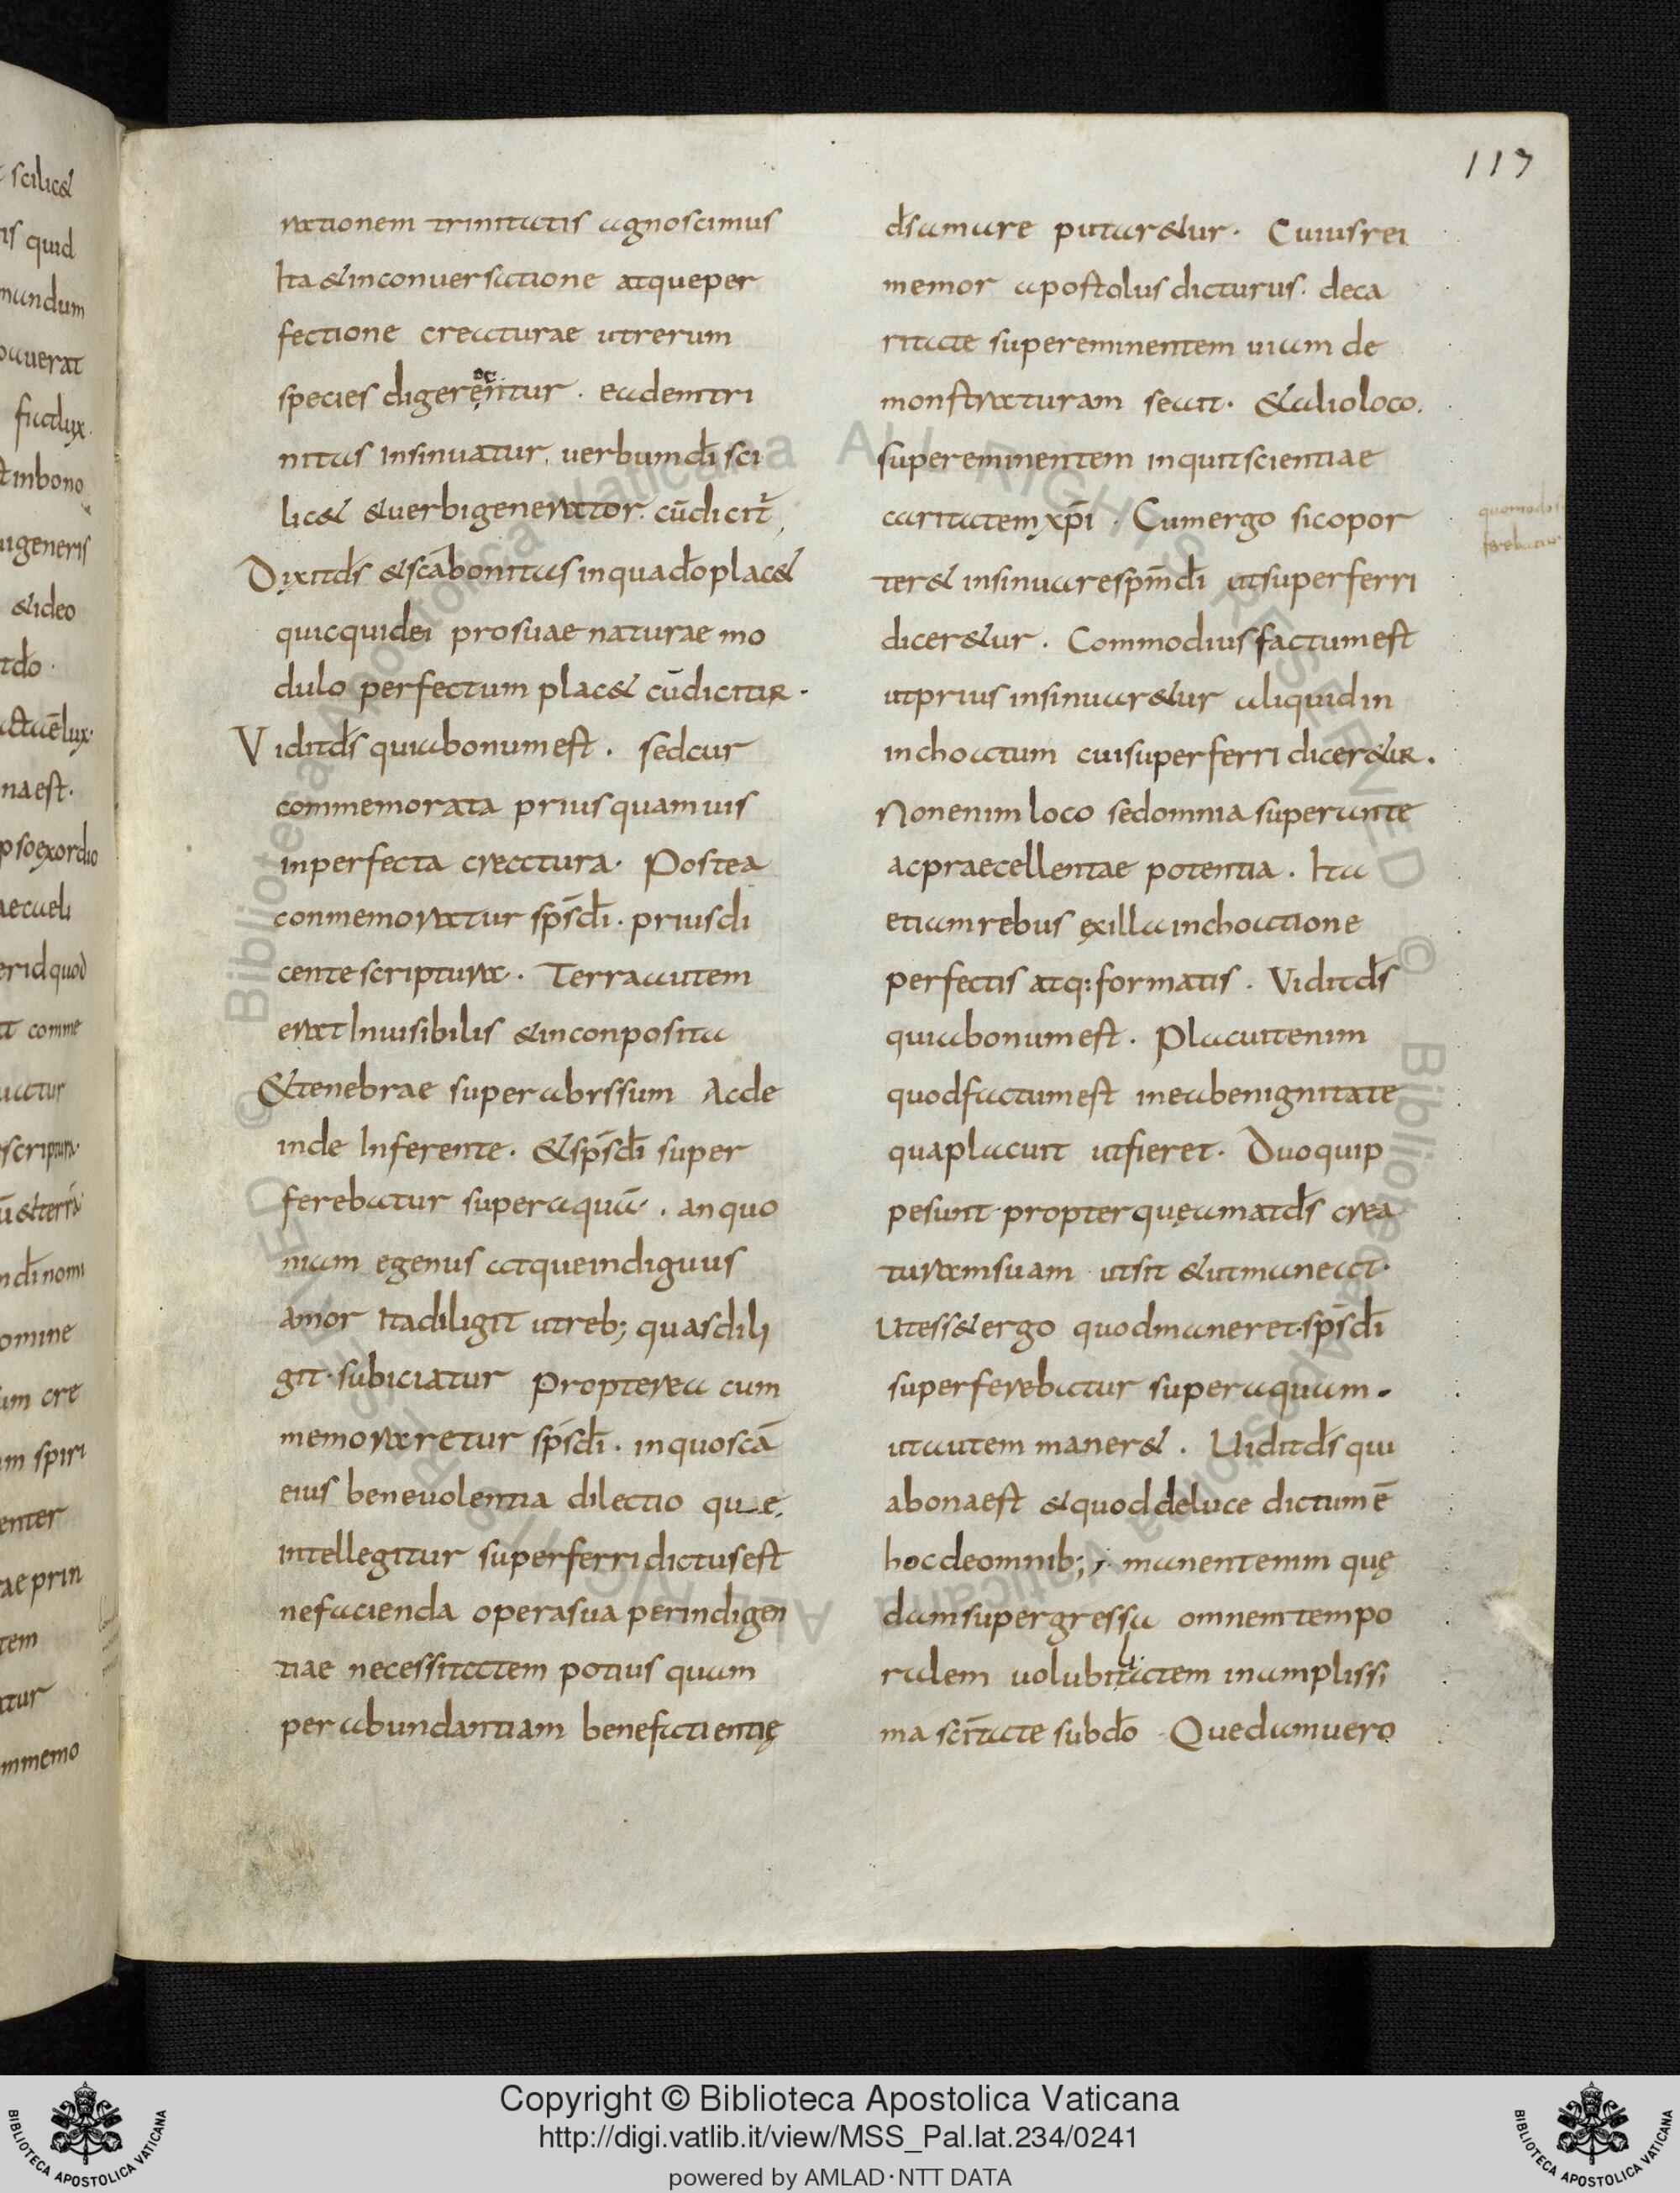 117
rationem trinitatis agnoscimus
Ita & inconuersatione atqueper
fectione creaturae utrerum
species digerentur · eadem tri
nitas insinuatur, uerbum dī sci
lic& & uerbi generator. cū dicit̄,
Dixit ds̄ & scā bonitas inqua dō plac&
quicquid ei pro suae naturae mo
dulo perfectum plac& cū dicitur ·
Vidit ds̄ quia bonum est · sed cur
commemorata prius quamuis
inperfecta creatura · Postea
conmemoratur sp̄s dī · prius di
cente scriptura · Terra autem
erat Inuisibilis & inconposita
& tenebrae super abyssum Ac de
inde Inferente · & sp̄s dī super
ferebatur super aquā · an quo
niam egenus atque indiguus
amor Ita diligit ut reb; quas dili
git · subiciatur Propterea cum
memoraretur sp̄s dī · in quo scā
eius beneuolentia dilectio quae
intellegitur superferri dictus est
ne facienda opera sua per indigen
tiae necessitatem potius quam
per abundantiam benefatientię
ds̄ amare putar&ur · Cuius rei
memor apostolus dicturus · de ca
ritate supereminentem uiam de
monstraturam se ait · & alio loco.
supereminentem inquit scientiae
caritatem xp̄i · Cum ergo sic opor
ter& insinuare spm̄ dī ut superferri
dicer&ur · Commodius factum est
ut prius insinuar&ur aliquid in
inchoatum cui superferri dicer&ur ·
Non enim loco sed omnia superante
ac praecellentae potentia · Ita
etiam rebus ex illa inchoatione
perfectis atq: formatis · Vidit ds̄
quia bonum est · Placuit enim
quod factum est in ea benignitate
qua placuit ut fieret · Duo quip
pe sunt propter quę amat ds̄ crea
turam suam ut sit & ut maneat ·
Ut ess& ergo quod maneret · sp̄s dī
superferebatur super aquam ·
ut autem maner& · Uidit ds̄ qui
a bona est & quod de luce dictum ē
hoc de omnib; ; manent enim quę
dam supergressa omnem tempo
ralem uolubilitatem in amplissi
ma scītate sub dō · Quedam uero
quomodo
ferebatur
Copyright © Biblioteca Apostolica Vaticana
http://digi.vatlib.it/view/MSS_Pal.lat.234/0241
powered by AMLAD·NTT DATA
BIBLIOTECA APOSTOLICA VATICANA
BIBLIOTECA APOSTOLICA VATICANA